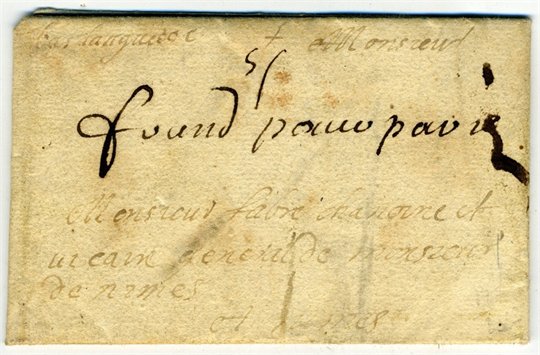 Bas languedoc + A Monsieur
5/
franc pour paris
Monsieur fabre chanoine et
vicaire general de monsieur
de nimes
A nimes